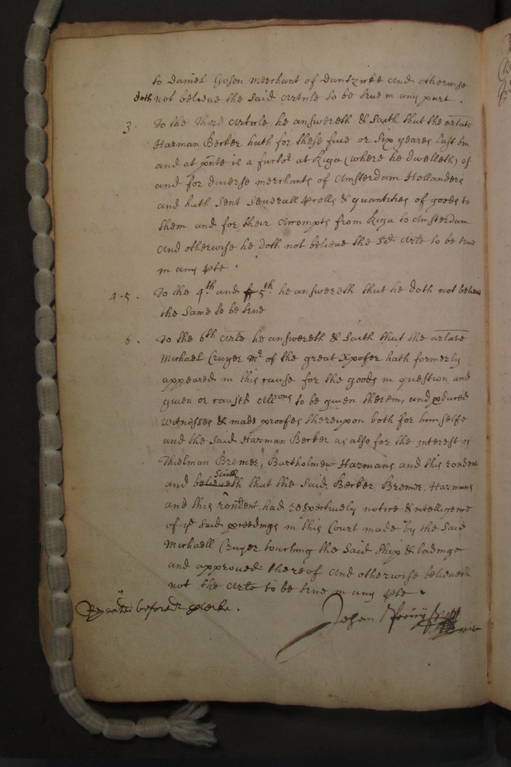 to Daniel Gosen Merchant of Dantzicke and otherwise
doth not beleeve the said article to be true in any part.
3. To the Third Article he answereth & saith that the arlate
Harman Becker hath for these five or six yeares last bin
and at pnte is a factor at Riga (where he dwelleth) of
and for diverse merchants of Amsterdam Hollanders
and hath sent severall prcells & quantities of goods to
them and for their Accompts from Riga to Amsterdam
And otherwise he doth not beleeve the sd arle to be true
in any pte.
4.5. To the 4th and 5th he answereth that he doth not beleeve
the same to be true
6. To the 6th arle he answereth & saith that the arlate
Michael Cruger Mr of the great Xpofer hath formerly
appeared in this cause for the goods in question and
given or caused all[ons] to be given therein, and pduced
witnesses & made proofes thereupon both for himselfe
and the said Harman Becker as also for the interest of
Thielman Bremer, Bartholmew Harmans and this rondent
and saith that the said Becker Bremer Harmans
and this rondent had respectively notice & intelligence
of ye said pceedings in this Court made by the said
Michaell Cruger touching the said ship & ladinge
and approved thereof And otherwise beleeveth
not the arle to be true in any pte.
before
Johan